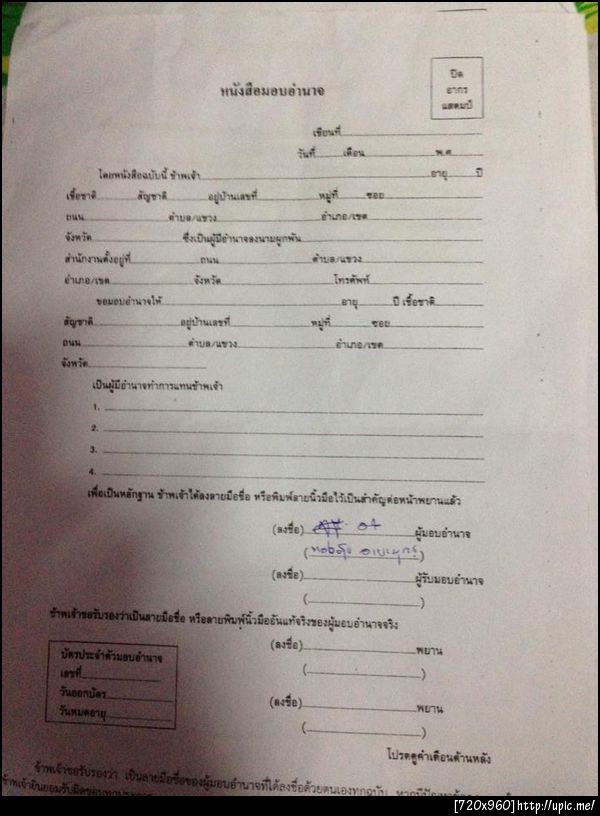 หนังสือมอบอำนาจ
ปิด
อากร
แสตมป์
เขียนที่
วันที่ เดือน พ.ศ.
โดยหนังสือฉบับนี้ ข้าพเจ้า อายุ ปี
เชื้อชาติ สัญชาติ อยู่บ้านเลขที่ หมู่ที่ ซอย
ถนน ตำบล/แขวง อำเภอ/เขต
จังหวัด ซึ่งเป็นผู้มีอำนาจลงนามผูกพัน
สำนักงานตั้งอยู่ที่ ถนน ตำบล/แขวง
อำเภอ/เขต จังหวัด โทรศัพท์
ขอมอบอำนาจให้ อายุ ปี เชื้อชาติ
สัญชาติ อยู่บ้านเลขที่ หมู่ที่ ซอย
ถนน ตำบล/แขวง อำเภอ/เขต
จังหวัด
เป็นผู้มีอำนาจทำการแทนข้าพเจ้า
1.
2.
3.
4.
เพื่อเป็นหลักฐาน ข้าพเจ้าได้ลงลายมือชื่อ หรือพิมพ์ลายนิ้วมือไว้เป็นสำคัญต่อหน้าพยานแล้ว
(ลงชื่อ) ผู้มอบอำนาจ
( )
(ลงชื่อ) ผู้รับมอบอำนาจ
( )
ข้าพเจ้าขอรับรองว่าเป็นลายมือชื่อ หรือลายพิมพ์นิ้วมืออันแท้จริงของผู้มอบอำนาจจริง
(ลงชื่อ) พยาน
( )
บัตรประจำตัวมอบอำนาจ
เลขที่
วันออกบัตร
วันหมดอายุ
(ลงชื่อ) พยาน
( )
โปรดดูคำเตือนด้านหลัง
ข้าพเจ้าขอรับรองว่า เป็นลายมือชื่อของผู้มอบอำนาจที่ได้ลงชื่อด้วยตนเองทุกฉบับ
ข้าพเจ้ายินยอมรับผิดชอบ
[720x960]http://upic.me/